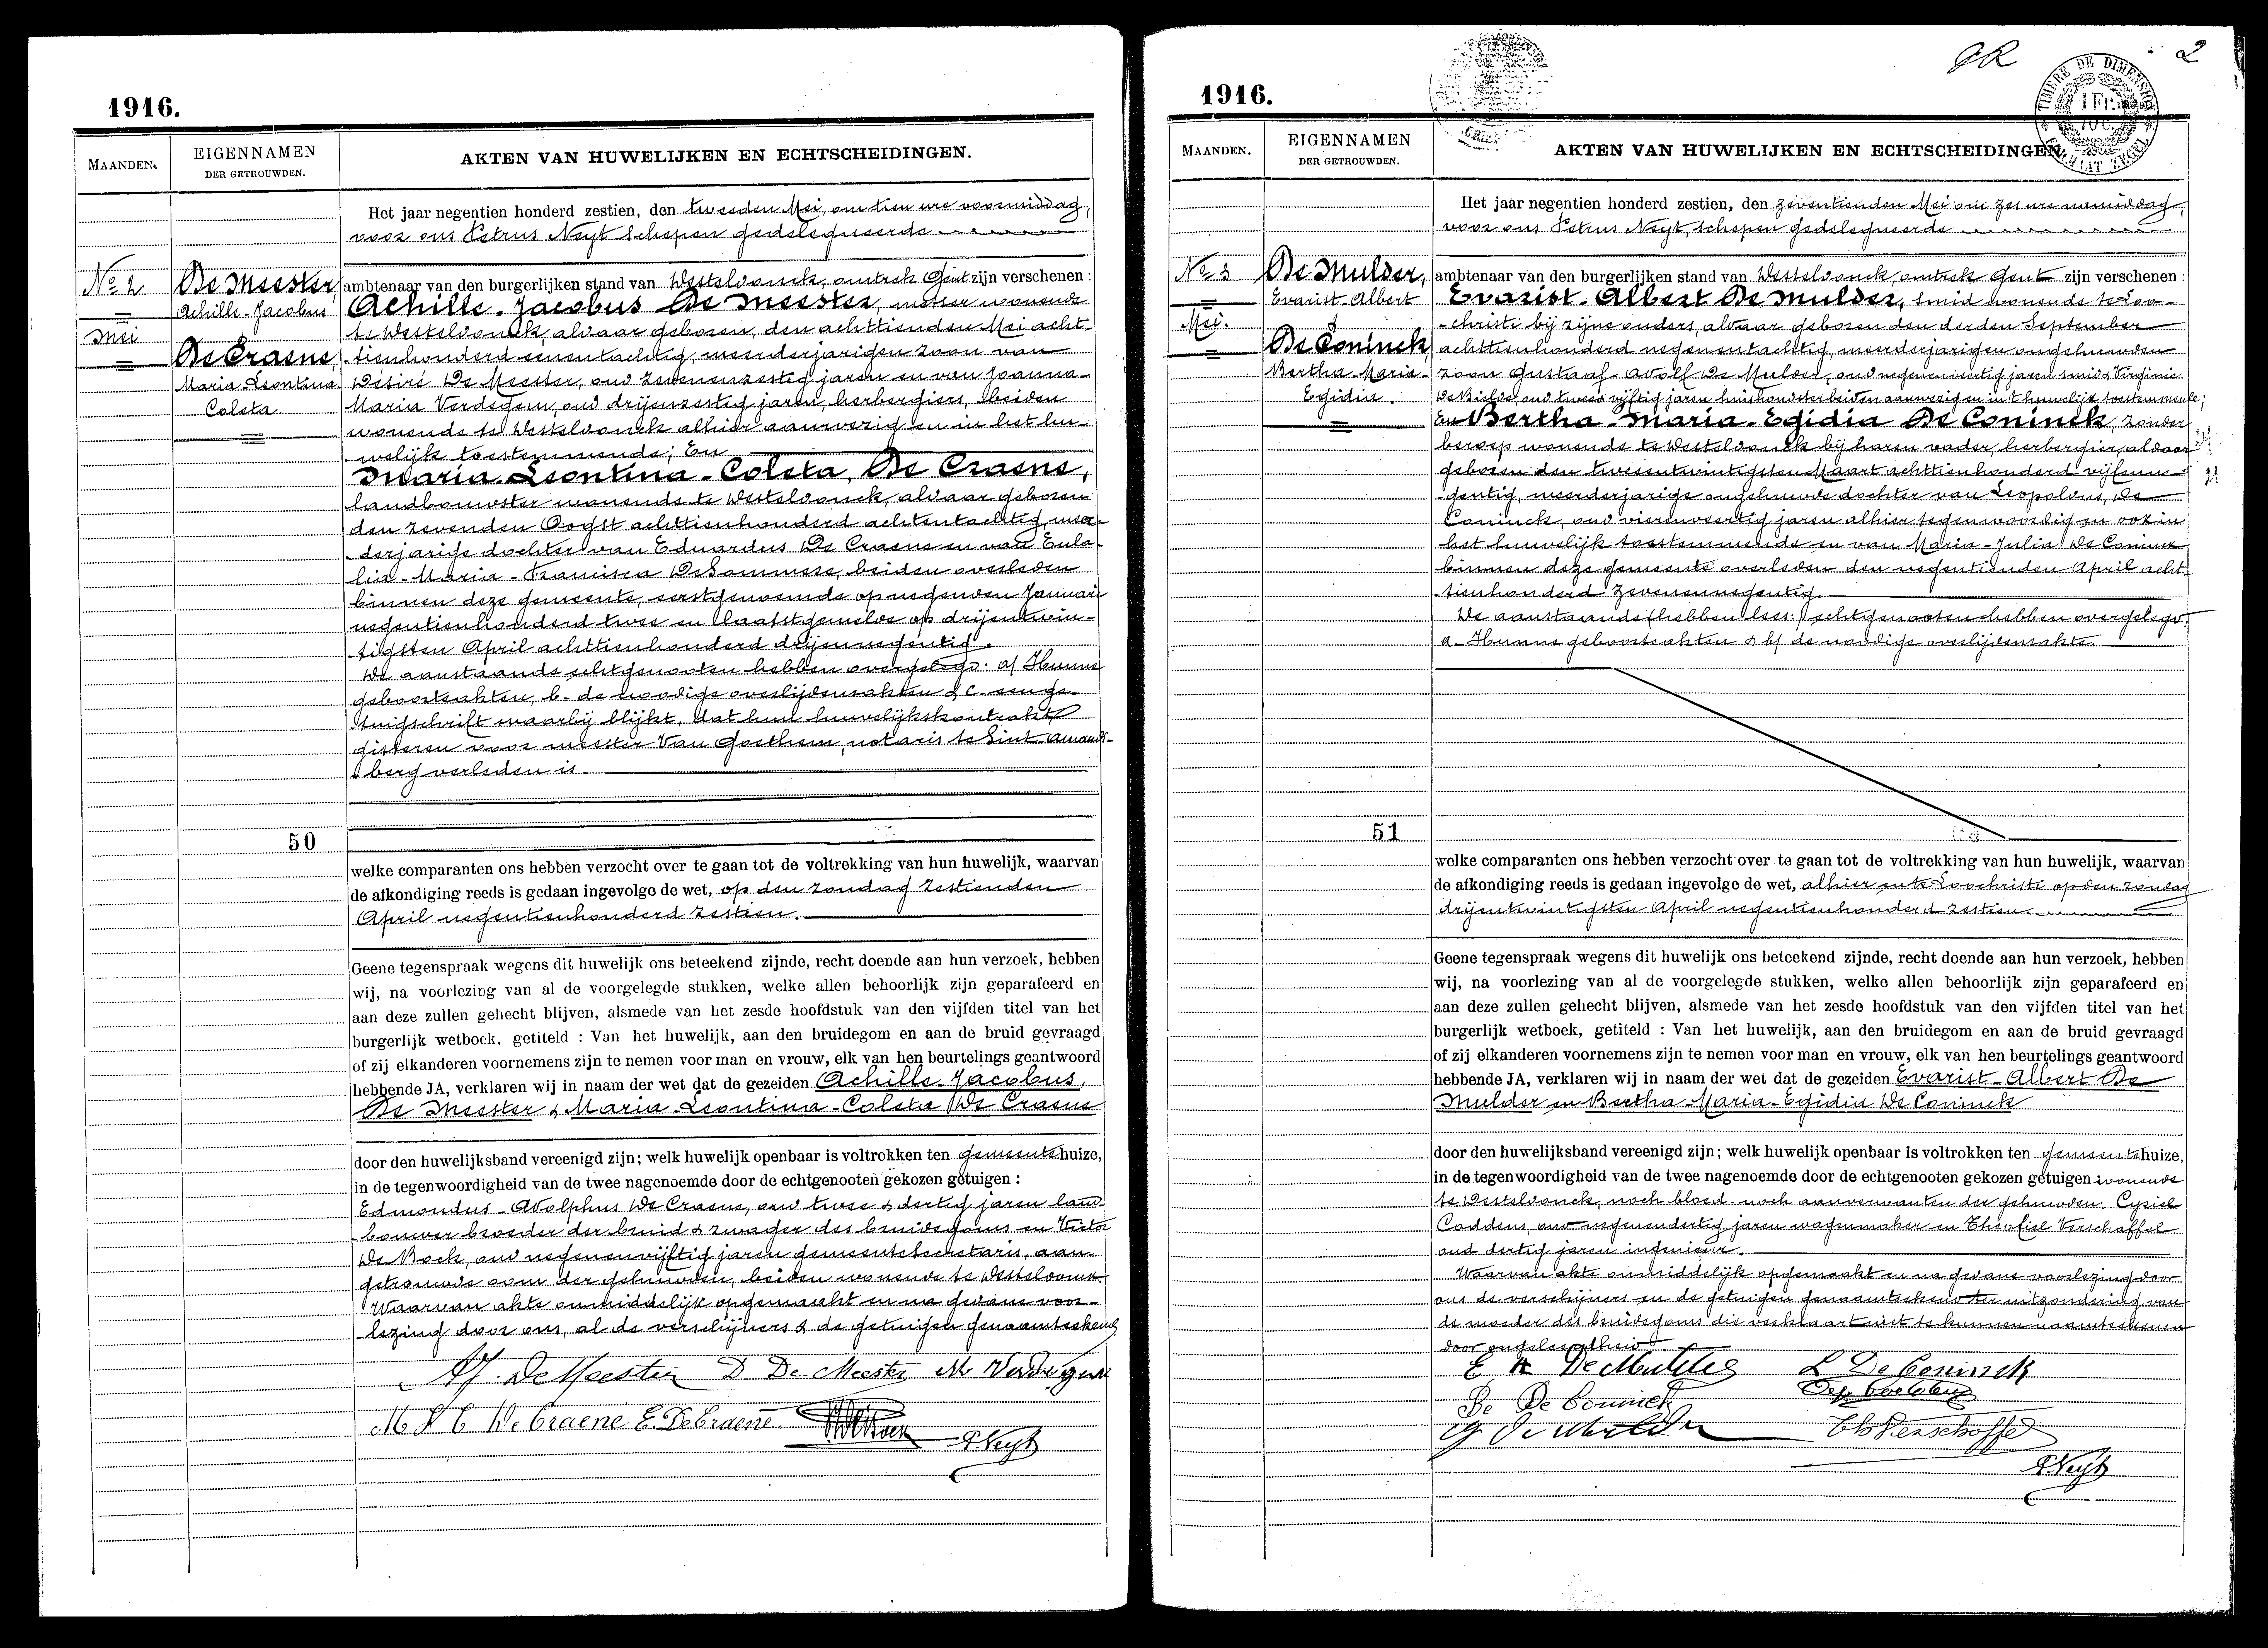 1916.
MAANDEN.
EIGENNAMEN
DER GETROUWDEN.
AKTEN VAN HUWELIJKEN EN ECHTSCHEIDINGEN.
Het jaar negentien honderd zestien, den tweeden Mei, om tien ure voormiddag,
voor ons Petrus Neyt Schepen gedelegueerde
No 2
Mei
De Meester,
Achille-Jacobus
De Craene,
Maria-Leontina-
Coleta
ambtenaar van den burgerlijken stand van Westeloonck, omtrek Gent zijn verschenen :
Achille-Jacobus De Meester, metser wonende
te Westeloonck, alwaar geboren, den achttienden Mei acht-
tienhonderd eenentachtig, meerderjarigen zoon van
Désiré De Meester, oud zevenenzestig jaren en van Joanna-
Maria Verdegem, oud drijenzestig jaren, herbergiers, beiden
wonende te Westeloonck alhier aanwezig en in het hu-
welijk toestemmende; En
Maria-Leontina-Coleta, De Craene,
landbouwster wonende te Westeloonck, alwaar geboren
den zevenden Oogst achttienhonderd achtentachtig, meer-
derjarige dochter van Eduardus De Craene en van Eula-
lia-Maria-Francisca DeSommere, beiden overleden
binnen deze gemeente, eerstgenoemde op negenden Januari
negentienhonderd twee en laatstgemelde op drijentwin-
tigsten April achttienhonderd drijennegentig.
De aanstaande echtgenooten hebben overgelegd: a/ Hunne
geboorteakten, b- de noodige overlijdensakten & c- een ge-
tuigschrift waarbij blijkt, dat hun huwelijkskontrakt
gisteren voor meester Van Goethem, notaris te Sint-Amands-
berg verleden is.
50
welke comparanten ons hebben verzocht over te gaan tot de voltrekking van hun huwelijk, waarvan
de afkondiging reeds is gedaan ingevolge de wet, op den zondag zestienden
April negentienhonderd zestien.
Geene tegenspraak wegens dit huwelijk ons beteekend zijnde, recht doende aan hun verzoek, hebben
wij, na voorlezing van al de voorgelegde stukken, welke allen behoorlijk zijn geparafeerd en
aan deze zullen gehecht blijven, alsmede van het zesde hoofdstuk van den vijfden titel van het
burgerlijk wetboek, getiteld : Van het huwelijk, aan den bruidegom en aan de bruid gevraagd
of zij elkanderen voornemens zijn te nemen voor man en vrouw, elk van hen beurtelings geantwoord
hebbende JA, verklaren wij in naam der wet dat de gezeiden Achille-Jacobus,
De Meester & Maria-Leontina-Coleta De Craene
door den huwelijksband vereenigd zijn; welk huwelijk openbaar is voltrokken ten gemeentehuize,
in de tegenwoordigheid van de twee nagenoemde door de echtgenooten gekozen getuigen :
Edmondus-Adolphus De Craene, oud twee & dertig jaren land-
bouwer broeder der bruid & zwager des bruidegoms en Victor
De Bock, oud negenenvijftig jaren gemeentesecretaris, aan-
getrouwde oom der gehuwden, beiden wonende te Westeloonck.
Waarvan akte onmiddelijk opgemaakt en na gedane voor-
lezing door ons, al de verschijners & de getuigen genaamteekend
A J. DeMeester D De Meester M Verdegem
M L C De Craene E. DeCraene
P. Neyt
1916.
GR
2
TIMBRE DE DIMENSION
1 Fr.
MAANDEN.
EIGENNAMEN
DER GETROUWDEN.
AKTEN VAN HUWELIJKEN EN ECHTSCHEIDINGEN.
Het jaar negentien honderd zestien, den zeventienden Mei om zes ure namiddag,
voor ons Petrus Neyt, schepen gedelegueerde
No 3
Mei.
De Mulder,
Evarist-Albert
&
De Coninck
Bertha-Maria-
Egidia.
ambtenaar van den burgerlijken stand van Westeloonck, omtrek Gent zijn verschenen :
Evarist-Albert De Mulder, smid wonende te Loo-
-christi bij zijne ouders, alwaar geboren den derden September
achttienhonderd negenentachtig, meerderjarigen ongehuwden
zoon Gustaaf-Adolf De Mulder, oud negenenveertig jaren smid & Virginie
De Bielde, oud tweeen vijftig jaren huishoudster beiden aanwezig en in 't huwelijk toestemmende;
En Bertha-Maria-Egidia De Coninck, zonder
beroep wonende te Westeloonck bij haren vader, herbergier, aldaar
geboren den tweeentwintigsten Maart achttienhonderd vijfenne-
gentig, meerderjarige ongehuwde dochter van Leopoldus, De
Coninck, oud vierenveertig jaren alhier tegenwoordig en ook in
het huwelijk toestemmende en van Maria-Julia De Coninck
binnen deze gemeente overleden den negentienden April acht-
tienhonderd zevenennegentig.
De aanstaande (hebben lees:) echtgenooten hebben overgelegd:
a- Hunne geboorteakten & b/ de noodige overlijdensakte.
51
welke comparanten ons hebben verzocht over te gaan tot de voltrekking van hun huwelijk, waarvan
de afkondiging reeds is gedaan ingevolge de wet, alhier en te Loochristi op den zondag
drijentwintigsten April negentienhonderd zestien.
Geene tegenspraak wegens dit huwelijk ons beteekend zijnde, recht doende aan hun verzoek, hebben
wij, na voorlezing van al de voorgelegde stukken, welke allen behoorlijk zijn geparafeerd en
aan deze zullen gehecht blijven, alsmede van het zesde hoofdstuk van den vijfden titel van het
burgerlijk wetboek, getiteld : Van het huwelijk, aan den bruidegom en aan de bruid gevraagd
of zij elkanderen voornemens zijn te nemen voor man en vrouw, elk van hen beurtelings geantwoord
hebbende JA, verklaren wij in naam der wet dat de gezeiden Evarist-Albert De
Mulder en Bertha-Maria-Egidia De Coninck
door den huwelijksband vereenigd zijn; welk huwelijk openbaar is voltrokken ten gemeentehuize,
in de tegenwoordigheid van de twee nagenoemde door de echtgenooten gekozen getuigen wonende
te Westeloonck, noch bloed- noch aanverwanten der gehuwden. Cyriel
Coddens, oud negenendertig jaren wagenmaker en Theofiel Verschaffel
oud dertig jaren ingenieur.
Waarvan akte onmiddelijk opgemaakt en na gedane voorlezing door
ons de verschijners en de getuigen genaamteekend ter uitzondering van
de moeder des bruidegoms die verklaart niet te kunnen naamteekenen
door ongeleerdheid.
E A De Mulder L De Coninck
Be De Coninck
G De Mulder Th Verschaffel
P. Neyt